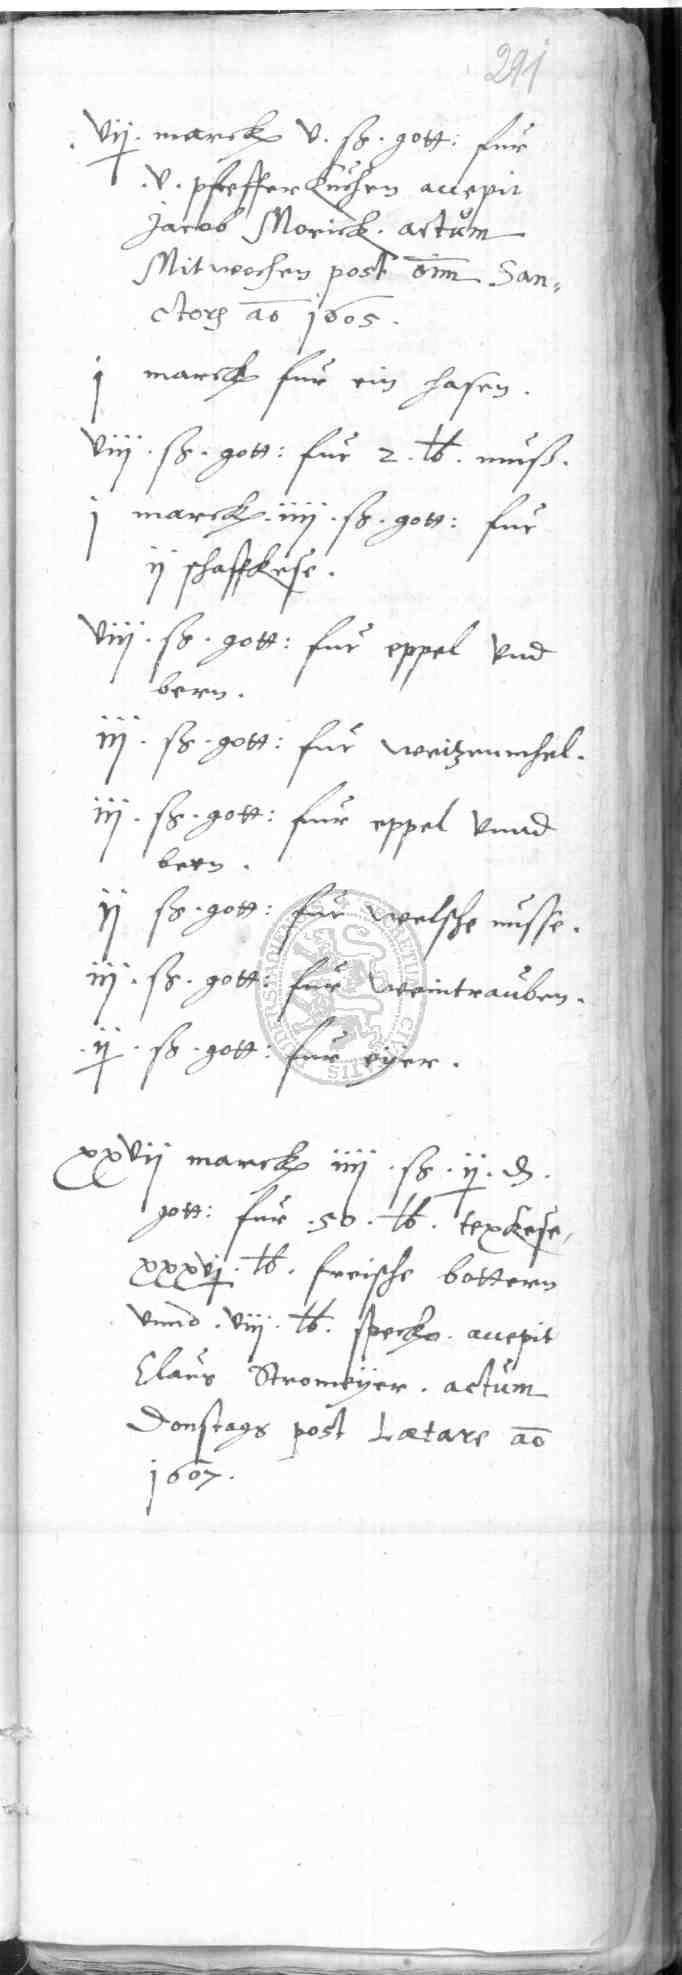 291
. vij . marck v . ß . gott : fur
. v . pfefferkuchen accepit
Jacob Morick . actum
Mitwochen post om̄ San-
ctorȝ ao 1605 .
j marck fur ein hasen .
viij . ß . gott : fur 2 . lb . muß .
j marck . iiij . ß . gott : fur
ij schaffkese .
viij . ß . gott : fur eppel vnd
bern .
iij . ß . gott : fur weitzenmehel .
iij . ß . gott : fur eppel vnnd
bern .
ij ß . gott : fur welsche nusse .
iij . ß . gott : fur weintrauben .
. ij . ß . gott : fur eÿer .
xxvij marck iiij . ß . ij . d .
gott : fur . 50 . lb . texkese ,
xxxvj . lb . freische bottern
vnnd . viij . lb . speck . accepit
Claus Stromeÿer . actum
Donstags post Lætare ao
1607 .